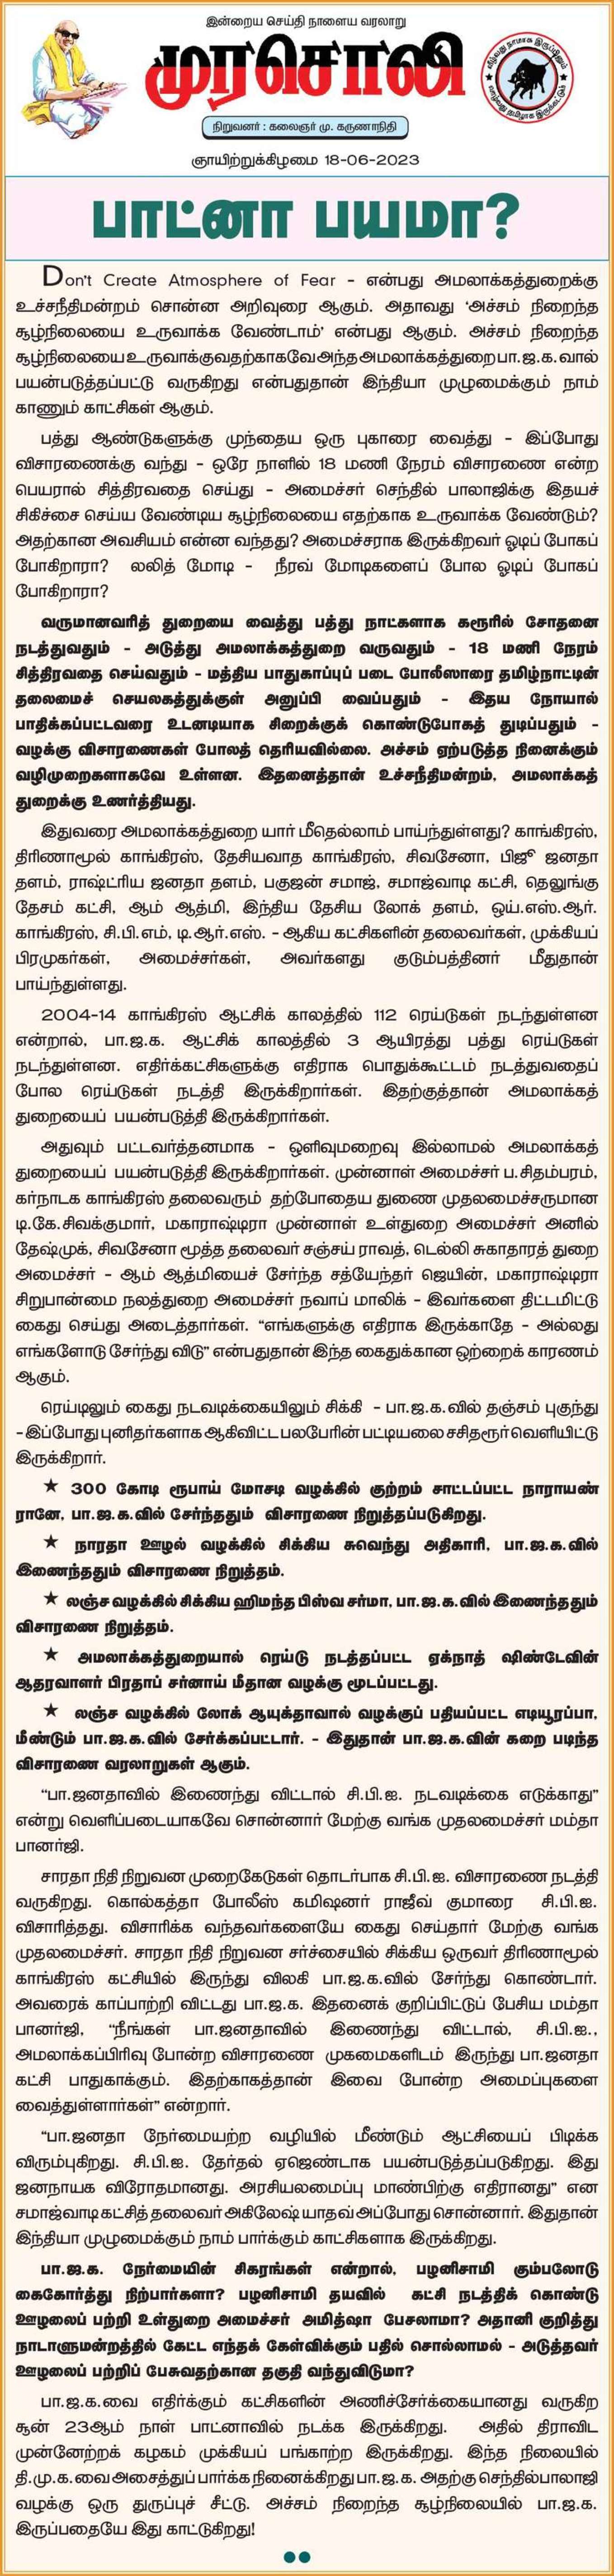 இன்றைய செய்தி நாளைய வரலாறு
முரசொலி
வீழ்வது நாமாக இருப்பினும்
வாழ்வது தமிழாக இருக்கட்டும்
நிறுவனர் : கலைஞர் மு. கருணாநிதி
ஞாயிற்றுக்கிழமை 18-06-2023
பாட்னா பயமா?
Don't Create Atmosphere of Fear - என்பது அமலாக்கத்துறைக்கு
உச்சநீதிமன்றம் சொன்ன அறிவுரை ஆகும். அதாவது ‘அச்சம் நிறைந்த
சூழ்நிலையை உருவாக்க வேண்டாம்’ என்பது ஆகும். அச்சம் நிறைந்த
சூழ்நிலையை உருவாக்குவதற்காகவே அந்த அமலாக்கத்துறை பா.ஜ.க.வால்
பயன்படுத்தப்பட்டு வருகிறது என்பதுதான் இந்தியா முழுமைக்கும் நாம்
காணும் காட்சிகள் ஆகும்.
பத்து ஆண்டுகளுக்கு முந்தைய ஒரு புகாரை வைத்து - இப்போது
விசாரணைக்கு வந்து - ஒரே நாளில் 18 மணி நேரம் விசாரணை என்ற
பெயரால் சித்திரவதை செய்து - அமைச்சர் செந்தில் பாலாஜிக்கு இதயச்
சிகிச்சை செய்ய வேண்டிய சூழ்நிலையை எதற்காக உருவாக்க வேண்டும்?
அதற்கான அவசியம் என்ன வந்தது? அமைச்சராக இருக்கிறவர் ஓடிப் போகப்
போகிறாரா? லலித் மோடி - நீரவ் மோடிகளைப் போல ஓடிப் போகப்
போகிறாரா?
வருமானவரித் துறையை வைத்து பத்து நாட்களாக கரூரில் சோதனை
நடத்துவதும் - அடுத்து அமலாக்கத்துறை வருவதும் - 18 மணி நேரம்
சித்திரவதை செய்வதும் - மத்திய பாதுகாப்புப் படை போலீஸாரை தமிழ்நாட்டின்
தலைமைச் செயலகத்துக்குள் அனுப்பி வைப்பதும் - இதய நோயால்
பாதிக்கப்பட்டவரை உடனடியாக சிறைக்குக் கொண்டுபோகத் துடிப்பதும் -
வழக்கு விசாரணைகள் போலத் தெரியவில்லை. அச்சம் ஏற்படுத்த நினைக்கும்
வழிமுறைகளாகவே உள்ளன. இதனைத்தான் உச்சநீதிமன்றம், அமலாக்கத்
துறைக்கு உணர்த்தியது.
இதுவரை அமலாக்கத்துறை யார் மீதெல்லாம் பாய்ந்துள்ளது? காங்கிரஸ்,
திரிணாமூல் காங்கிரஸ், தேசியவாத காங்கிரஸ், சிவசேனா, பிஜூ ஜனதா
தளம், ராஷ்ட்ரிய ஜனதா தளம், பகுஜன் சமாஜ், சமாஜ்வாடி கட்சி, தெலுங்கு
தேசம் கட்சி, ஆம் ஆத்மி, இந்திய தேசிய லோக் தளம், ஒய்.எஸ்.ஆர்.
காங்கிரஸ், சி.பி.எம், டி.ஆர்.எஸ். - ஆகிய கட்சிகளின் தலைவர்கள், முக்கியப்
பிரமுகர்கள், அமைச்சர்கள், அவர்களது குடும்பத்தினர் மீதுதான்
பாய்ந்துள்ளது.
2004-14 காங்கிரஸ் ஆட்சிக் காலத்தில் 112 ரெய்டுகள் நடந்துள்ளன
என்றால், பா.ஜ.க. ஆட்சிக் காலத்தில் 3 ஆயிரத்து பத்து ரெய்டுகள்
நடந்துள்ளன. எதிர்க்கட்சிகளுக்கு எதிராக பொதுக்கூட்டம் நடத்துவதைப்
போல ரெய்டுகள் நடத்தி இருக்கிறார்கள். இதற்குத்தான் அமலாக்கத்
துறையைப் பயன்படுத்தி இருக்கிறார்கள்.
அதுவும் பட்டவர்த்தனமாக - ஒளிவுமறைவு இல்லாமல் அமலாக்கத்
துறையைப் பயன்படுத்தி இருக்கிறார்கள். முன்னாள் அமைச்சர் ப.சிதம்பரம்,
கர்நாடக காங்கிரஸ் தலைவரும் தற்போதைய துணை முதலமைச்சருமான
டி.கே.சிவக்குமார், மகாராஷ்டிரா முன்னாள் உள்துறை அமைச்சர் அனில்
தேஷ்முக், சிவசேனா மூத்த தலைவர் சஞ்சய் ராவத், டெல்லி சுகாதாரத் துறை
அமைச்சர் - ஆம் ஆத்மியைச் சேர்ந்த சத்யேந்தர் ஜெயின், மகாராஷ்டிரா
சிறுபான்மை நலத்துறை அமைச்சர் நவாப் மாலிக் - இவர்களை திட்டமிட்டு
கைது செய்து அடைத்தார்கள். “எங்களுக்கு எதிராக இருக்காதே - அல்லது
எங்களோடு சேர்ந்து விடு” என்பதுதான் இந்த கைதுக்கான ஒற்றைக் காரணம்
ஆகும்.
ரெய்டிலும் கைது நடவடிக்கையிலும் சிக்கி - பா.ஜ.க.வில் தஞ்சம் புகுந்து
- இப்போது புனிதர்களாக ஆகிவிட்ட பலபேரின் பட்டியலை சசிதரூர் வெளியிட்டு
இருக்கிறார்.
★ 300 கோடி ரூபாய் மோசடி வழக்கில் குற்றம் சாட்டப்பட்ட நாராயண்
ரானே, பா.ஜ.க.வில் சேர்ந்ததும் விசாரணை நிறுத்தப்படுகிறது.
★ நாரதா ஊழல் வழக்கில் சிக்கிய சுவெந்து அதிகாரி, பா.ஜ.க.வில்
இணைந்ததும் விசாரணை நிறுத்தம்.
★ லஞ்ச வழக்கில் சிக்கிய ஹிமந்த பிஸ்வ சர்மா, பா.ஜ.க.வில் இணைந்ததும்
விசாரணை நிறுத்தம்.
★ அமலாக்கத்துறையால் ரெய்டு நடத்தப்பட்ட ஏக்நாத் ஷிண்டேவின்
ஆதரவாளர் பிரதாப் சர்னாய் மீதான வழக்கு மூடப்பட்டது.
★ லஞ்ச வழக்கில் லோக் ஆயுக்தாவால் வழக்குப் பதியப்பட்ட எடியூரப்பா,
மீண்டும் பா.ஜ.க.வில் சேர்க்கப்பட்டார். - இதுதான் பா.ஜ.க.வின் கறை படிந்த
விசாரணை வரலாறுகள் ஆகும்.
“பா.ஜனதாவில் இணைந்து விட்டால் சி.பி.ஐ. நடவடிக்கை எடுக்காது”
என்று வெளிப்படையாகவே சொன்னார் மேற்கு வங்க முதலமைச்சர் மம்தா
பானர்ஜி.
சாரதா நிதி நிறுவன முறைகேடுகள் தொடர்பாக சி.பி.ஐ. விசாரணை நடத்தி
வருகிறது. கொல்கத்தா போலீஸ் கமிஷனர் ராஜீவ் குமாரை சி.பி.ஐ.
விசாரித்தது. விசாரிக்க வந்தவர்களையே கைது செய்தார் மேற்கு வங்க
முதலமைச்சர். சாரதா நிதி நிறுவன சர்ச்சையில் சிக்கிய ஒருவர் திரிணாமூல்
காங்கிரஸ் கட்சியில் இருந்து விலகி பா.ஜ.க.வில் சேர்ந்து கொண்டார்.
அவரைக் காப்பாற்றி விட்டது பா.ஜ.க. இதனைக் குறிப்பிட்டுப் பேசிய மம்தா
பானர்ஜி, “நீங்கள் பா.ஜனதாவில் இணைந்து விட்டால், சி.பி.ஐ.,
அமலாக்கப்பிரிவு போன்ற விசாரணை முகமைகளிடம் இருந்து பா.ஜனதா
கட்சி பாதுகாக்கும். இதற்காகத்தான் இவை போன்ற அமைப்புகளை
வைத்துள்ளார்கள்” என்றார்.
“பா.ஜனதா நேர்மையற்ற வழியில் மீண்டும் ஆட்சியைப் பிடிக்க
விரும்புகிறது. சி.பி.ஐ. தேர்தல் ஏஜெண்டாக பயன்படுத்தப்படுகிறது. இது
ஜனநாயக விரோதமானது. அரசியலமைப்பு மாண்பிற்கு எதிரானது” என
சமாஜ்வாடி கட்சித் தலைவர் அகிலேஷ் யாதவ் அப்போது சொன்னார். இதுதான்
இந்தியா முழுமைக்கும் நாம் பார்க்கும் காட்சிகளாக இருக்கிறது.
பா.ஜ.க. நேர்மையின் சிகரங்கள் என்றால், பழனிசாமி கும்பலோடு
கைகோர்த்து நிற்பார்களா? பழனிசாமி தயவில் கட்சி நடத்திக் கொண்டு
ஊழலைப் பற்றி உள்துறை அமைச்சர் அமித்ஷா பேசலாமா? அதானி குறித்து
நாடாளுமன்றத்தில் கேட்ட எந்தக் கேள்விக்கும் பதில் சொல்லாமல் - அடுத்தவர்
ஊழலைப் பற்றிப் பேசுவதற்கான தகுதி வந்துவிடுமா?
பா.ஜ.க.வை எதிர்க்கும் கட்சிகளின் அணிச்சேர்க்கையானது வருகிற
சூன் 23ஆம் நாள் பாட்னாவில் நடக்க இருக்கிறது. அதில் திராவிட
முன்னேற்றக் கழகம் முக்கியப் பங்காற்ற இருக்கிறது. இந்த நிலையில்
தி.மு.க.வை அசைத்துப் பார்க்க நினைக்கிறது பா.ஜ.க. அதற்கு செந்தில்பாலாஜி
வழக்கு ஒரு துருப்புச் சீட்டு. அச்சம் நிறைந்த சூழ்நிலையில் பா.ஜ.க.
இருப்பதையே இது காட்டுகிறது!